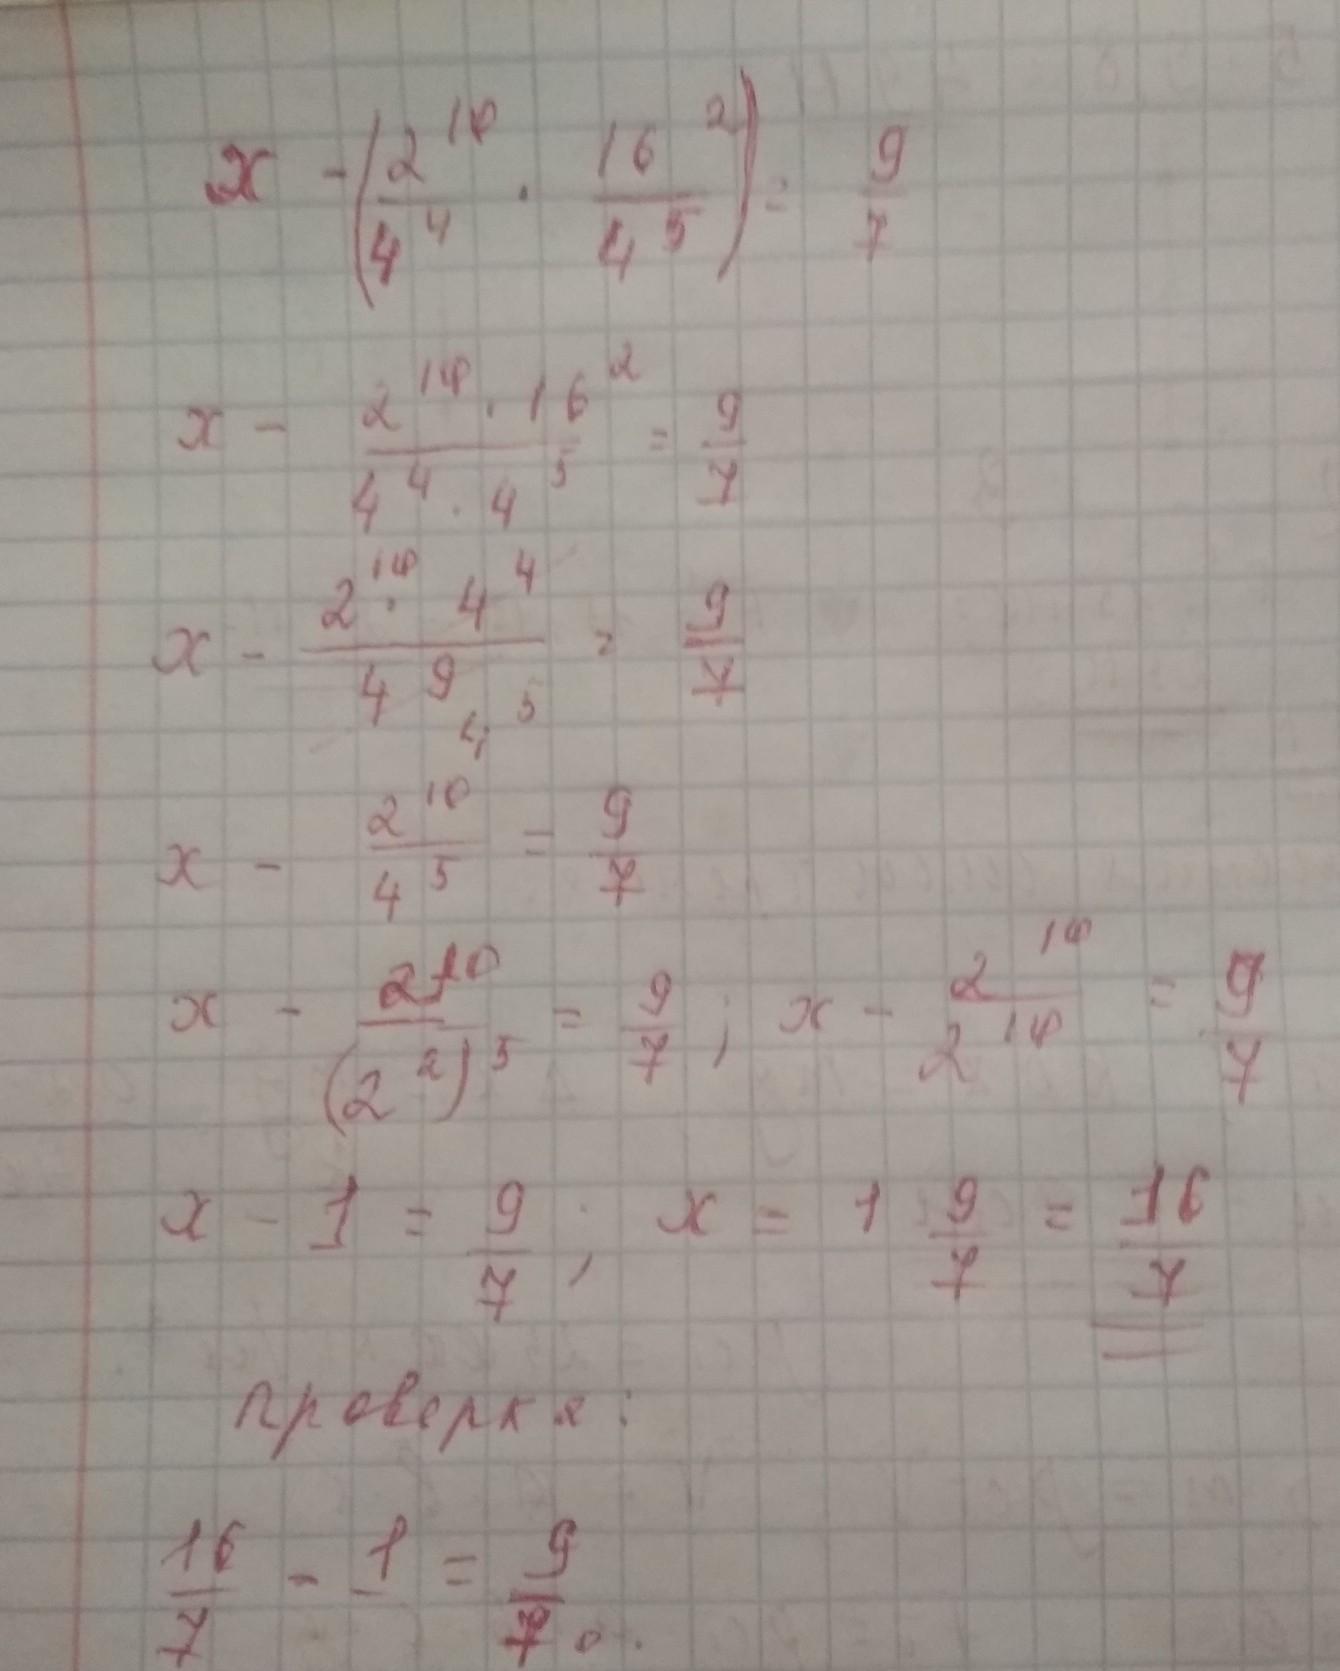 x - (2^10/4^4 · 16^2/4^5) = 9/7
x - (2^10 · 16^2)/(4^4 · 4^5) = 9/7
x - (2^10 · 4^4)/(4^9) = 9/7
4^5
x - 2^10/4^5 = 9/7
x - 2^10/(2^2)^5 = 9/7; x - 2^10/2^10 = 9/7
x - 1 = 9/7; x = 1 9/7 = 16/7
проверка:
16/7 - 1 = 9/7.